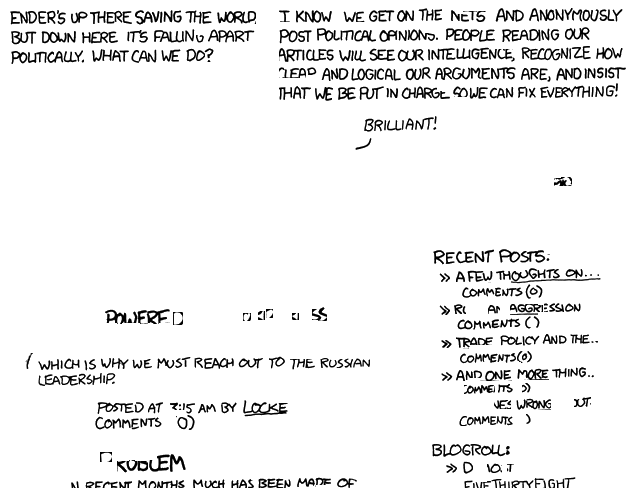 ENDER'S UP THERE SAVING THE WORLD,
BUT DOWN HERE IT'S FALLING APART
POLITICALLY. WHAT CAN WE DO?
I KNOW WE GET ON THE NETS AND ANONYMOUSLY
POST POLITICAL OPINIONS. PEOPLE READING OUR
ARTICLES WILL SEE OUR INTELLIGENCE, RECOGNIZE HOW
AND LOGICAL OUR ARGUMENTS ARE, AND INSIST
THAT WE BE PUT IN CHARGE SO WE CAN FIX EVERYTHING!
BRILLIANT!
WHICH IS WHY WE MUST REACH OUT TO THE RUSSIAN
LEADERSHIP.
POSTED AT AM BY LOCKE
COMMENTS (0)
IN RECENT MONTHS MUCH HAS BEEN MADE OF
RECENT POSTS:
» A FEW THOUGHTS ON...
COMMENTS (0)
» AGGRESSION
COMMENTS ( )
» TRADE POLICY AND THE..
COMMENTS (0)
» AND ONE MORE THING..
COMMENTS
WRONG
COMMENTS )
BLOGROLL:
»
FIVETHIRTYEIGHT